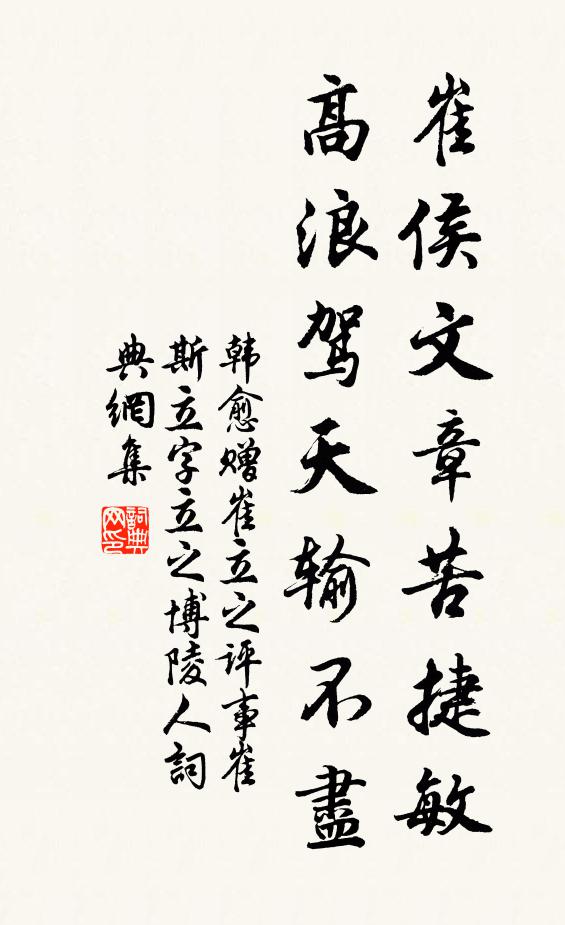 崔侯文章苦捷敏
高浪駕天輸不盡
韩愈赠崔立之评事崔
斯立字立之博陵人詞
典網集
詞典网印